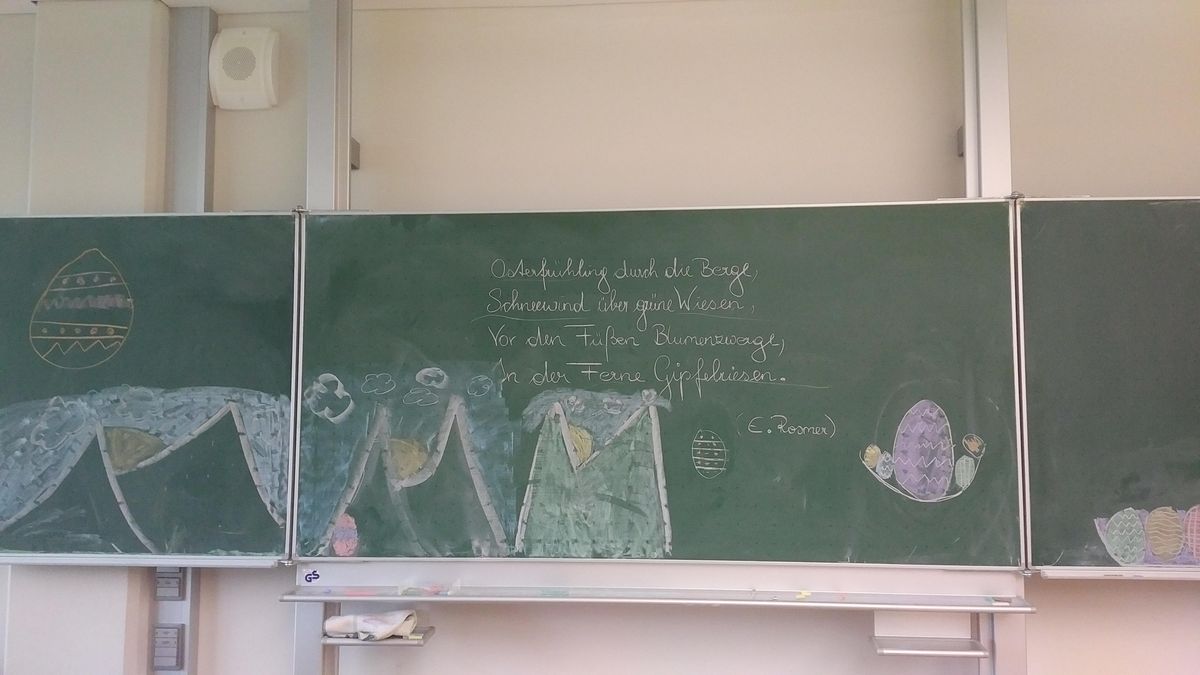 Osterfrühling durch die Berge,
Schneewind über grüne Wiesen,
Vor den Füßen Blumenzwerge,
In der Ferne Gipfelriesen.
(E. Rosmer)
GS